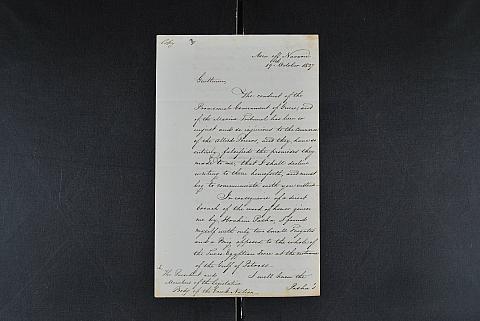 Copy
Asia off Navarin
19th October 1827
Gentlemen,
The conduct of the
Provisional Government of Greece, and
of the Marine Tribunal has been so
unjust and so injurious to the Commerce
of the Allied Powers, and they have so
entirely falsified the promises they
made to me, that I shall decline
writing to them henceforth, and must
beg to communicate with you instead.
In consequence of a direct
breach of the word of honor given
me by Ibrahim Pasha, I found
myself with only two Small Frigates
and a Brig opposed to the whole of
the Turco Egyptian force at the entrance
of the Gulf of Patrass.
I well knew the
The President and
Members of the Legislative
Body of the Greek Nation
Pasha's